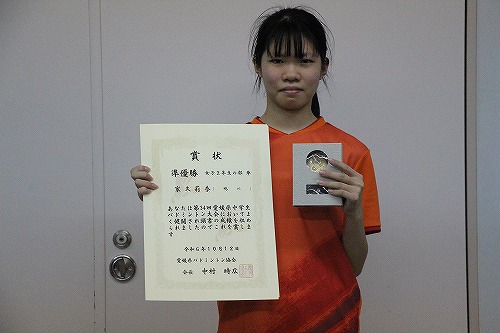 賞状
準優勝 女子2年生の部 単
家久莉香
あなたは第34回愛媛県中学生
バドミントン大会においてよ
く健闘され頭書の成績を収め
られましたのでこれを賞しま
す
令和6年10月12日
愛媛県バドミントン協会
会長 中村 時広